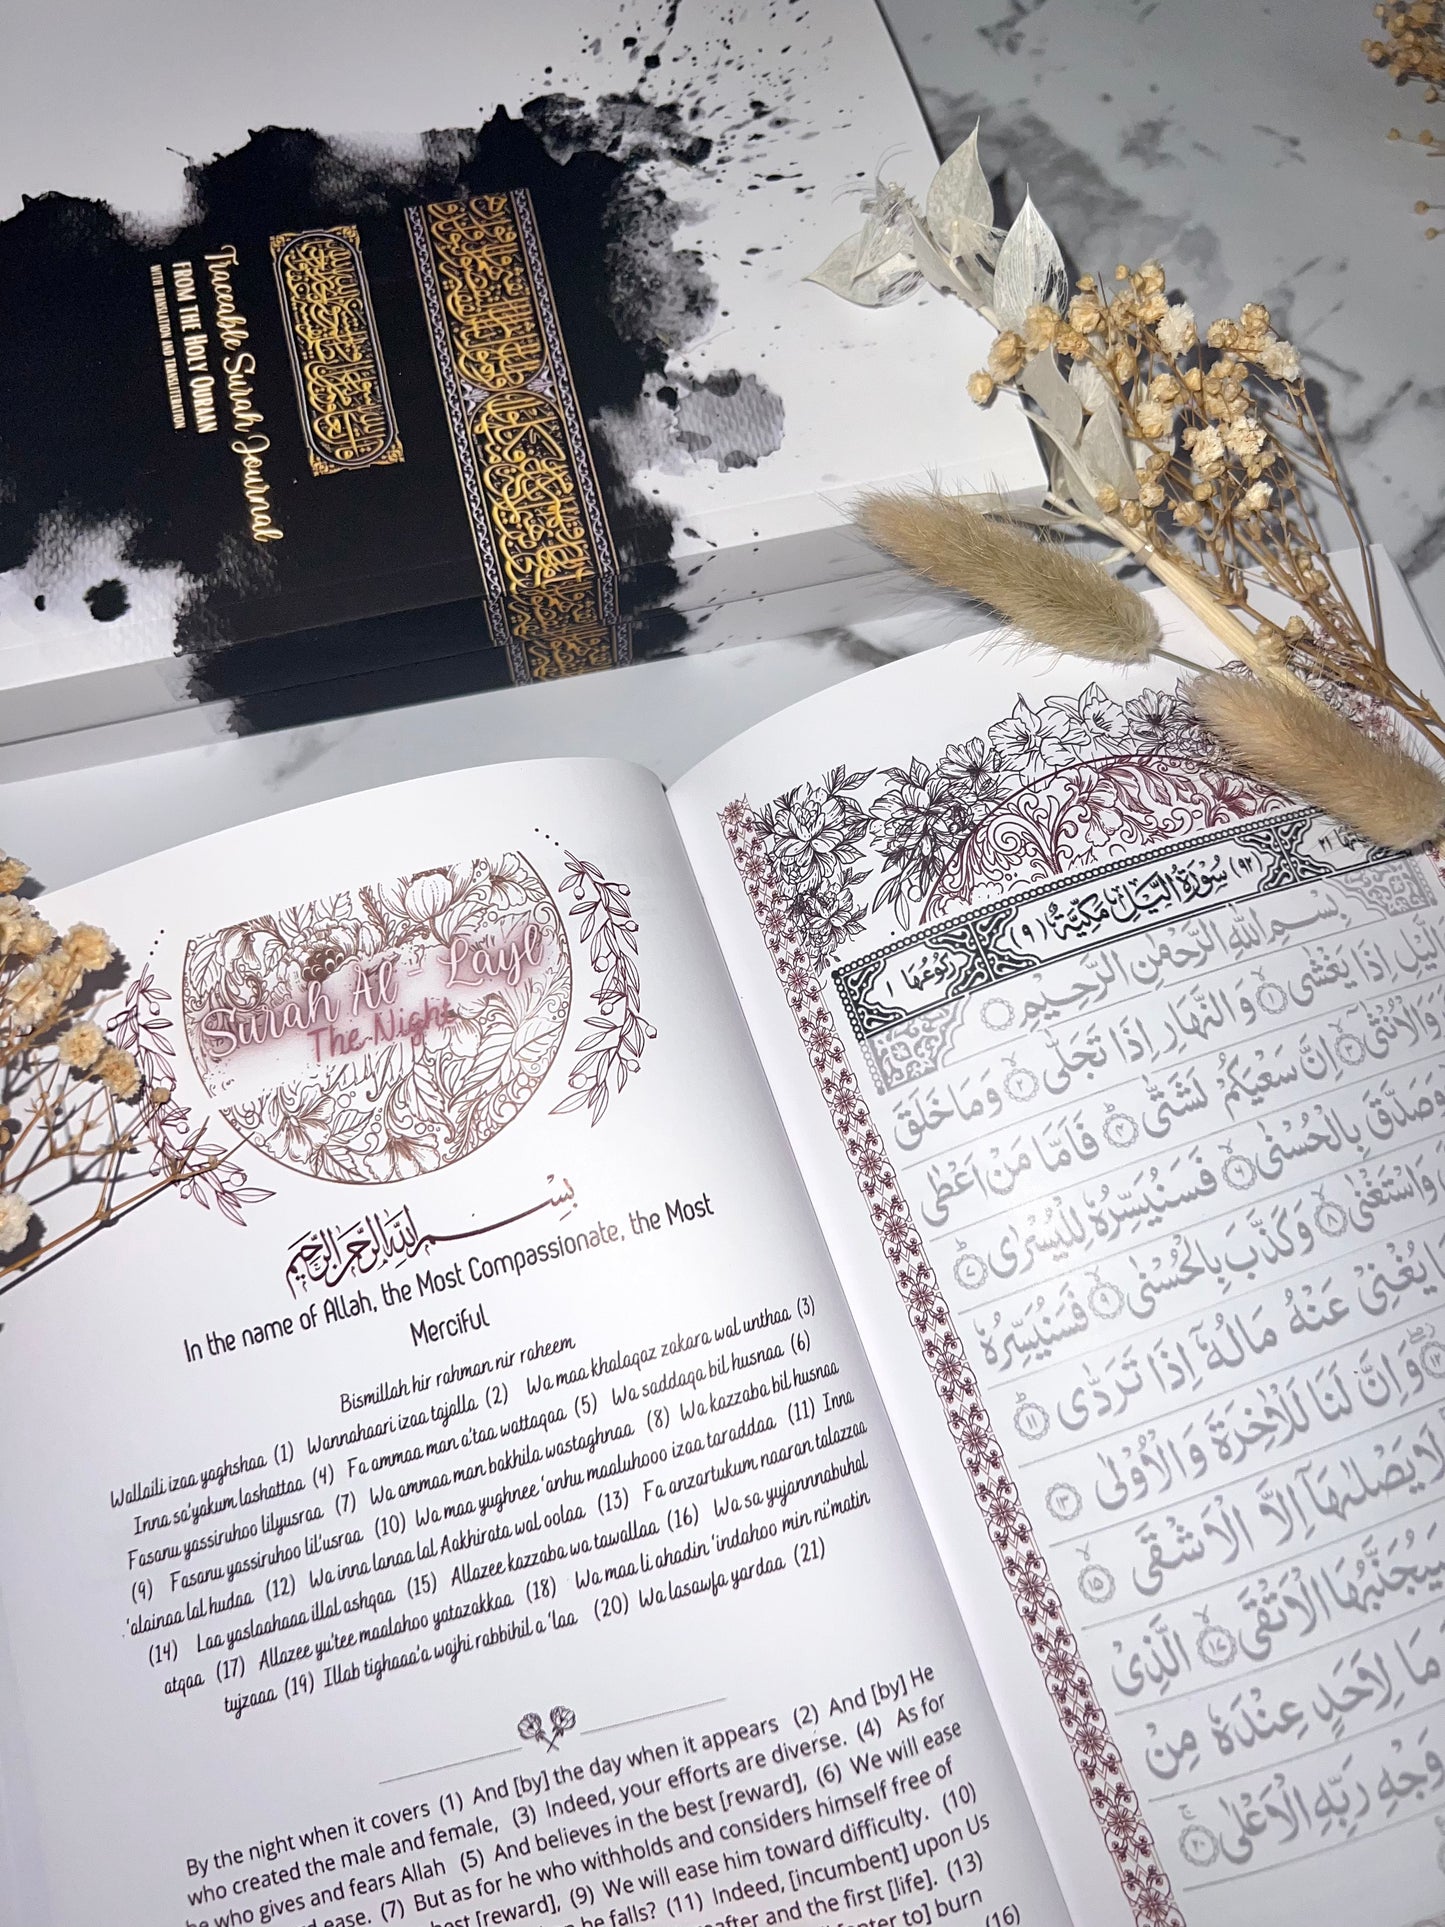 Traceable Surah Journal
FROM THE HOLY QURAAN
WITH TRANSLATION AND TRANSLITERATION
Surah Al - Layl
The Night
بِسْمِ اللهِ الرَّحْمٰنِ الرَّحِيْمِ
In the name of Allah, the Most Compassionate, the Most
Merciful
Bismillah hir rahman nir raheem
Wallaili izaa yaghshaa (1) Wannahaari izaa tajalla (2) Wa maa khalaqaz zakara wal unthaa (3)
Inna sa'yakum lashattaa (4) Fa ammaa man a'taa wattaqaa (5) Wa saddaqa bil husnaa (6)
Fasanu yassiruhoo lilyusraa (7) Wa ammaa man bakhila wastaghnaa (8) Wa kazzaba bil husnaa
(9) Fasanu yassiruhoo lil'usraa (10) Wa maa yughnee 'anhu maaluhooo izaa taraddaa (11) Inna
'alainaa lal hudaa (12) Wa inna lanaa lal Aakhirata wal oolaa (13) Fa anzartukum naaran talazzaa
(14) Laa yaslaahaaa illal ashqaa (15) Allazee kazzaba wa tawallaa (16) Wa sa yujannnabuhal
atqaa (17) Allazee yu'tee maalahoo yatazakkaa (18) Wa maa li ahadin 'indahoo min ni'matin
tujzaaa (19) Illab tighaaa'a wajhi rabbihil a 'laa (20) Wa lasawfa yardaa (21)
By the night when it covers (1) And [by] the day when it appears (2) And [by] He
who created the male and female, (3) Indeed, your efforts are diverse. (4) As for
he who gives and fears Allah (5) And believes in the best [reward], (6) We will ease
ease. (7) But as for he who withholds and considers himself free of
[reward], (9) We will ease him toward difficulty. (10)
he falls? (11) Indeed, [incumbent] upon Us
and the first [life]. (13)
to] burn
(16)
سُوْرَةُ الَّيْلِ مَكِّيَّةٌ (٩) (٩٢)
رُكُوْعُهَا ١
بِسْمِ اللهِ الرَّحْمٰنِ الرَّحِيْمِ
اِذَا يَغْشٰى ١ وَالنَّهَارِ اِذَا تَجَلّٰى ٢ وَمَا خَلَقَ
وَالْاُنْثٰى ٣ اِنَّ سَعْيَكُمْ لَشَتّٰى ٤ فَاَمَّا مَنْ اَعْطٰى
وَصَدَّقَ بِالْحُسْنٰى ٦ فَسَنُيَسِّرُهٗ لِلْيُسْرٰى ٧
وَاسْتَغْنٰى ٨ وَكَذَّبَ بِالْحُسْنٰى ٩ فَسَنُيَسِّرُهٗ
يُغْنِيْ عَنْهُ مَالُهٗٓ اِذَا تَرَدّٰى ١١
١٢ وَاِنَّ لَنَا لَلْاٰخِرَةَ وَالْاُوْلٰى ١٣
لَا يَصْلٰىهَآ اِلَّا الْاَشْقَى ١٥
الْاَتْقَى ١٧ الَّذِيْ
مَا لِاَحَدٍ عِنْدَهٗ مِنْ
وَجْهِ رَبِّهِ الْاَعْلٰى ٢٠